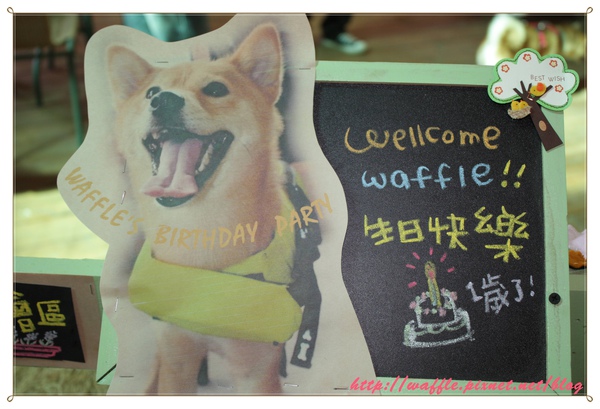 BEST WISH
WAFFLE'S BIRTHDAY PARTY
Wellcome
waffle!!
生日快樂
1歲了!
區
http://waffle.pixnet.net/blog